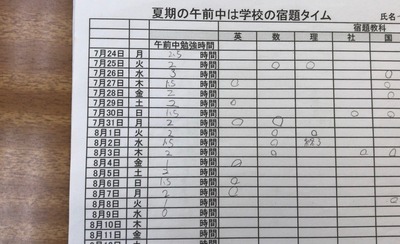 夏期の午前中は学校の宿題タイム 氏名
宿題教科
午前中勉強時間 英 数 理 社 国
7月24日 月 2.5 時間
7月25日 火 2 時間 ○ ○
7月26日 水 3 時間 ○
7月27日 木 1.5 時間 ○ ○
7月28日 金 2 時間 ○
7月29日 土 2 時間 ○
7月30日 日 1.5 時間 ○ ○
7月31日 月 2 時間 ○ ○
8月1日 火 2 時間 ○ ○
8月2日 水 1.5 時間 ○
8月3日 木 2 時間 ○ ○ ○
8月4日 金 1 時間 ○
8月5日 土 2 時間
8月6日 日 1.5 時間 ○
8月7日 月 時間 ○
8月8日 火 1 時間 ○
8月9日 水 0 時間
8月10日 木 時間
8月11日 金 時間